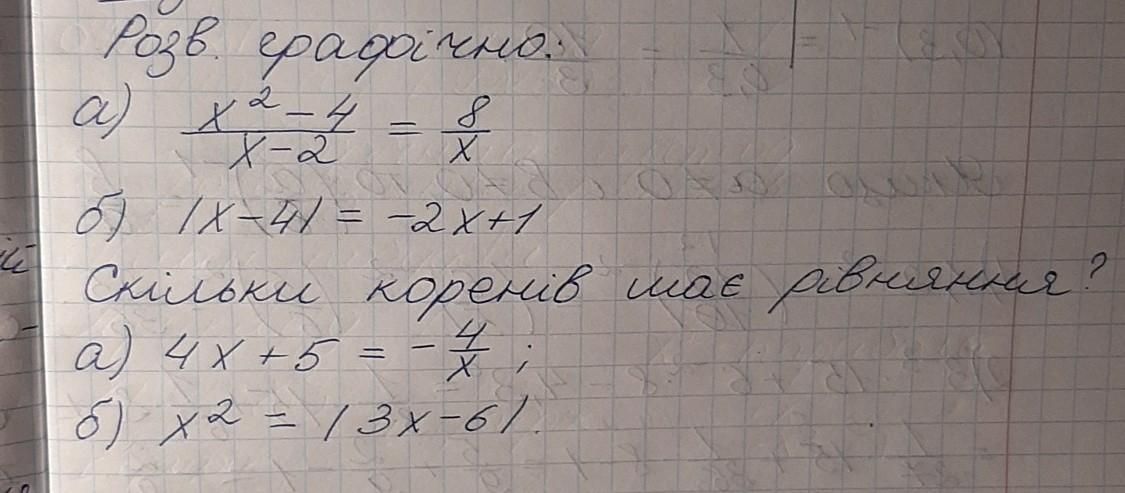 Розв. графічно:
а) x² - 4 / x - 2 = 8 / x
б) |x - 4| = -2x + 1
Скільки коренів має рівняння?
а) 4x + 5 = - 4 / x ;
б) x² = |3x - 6|.